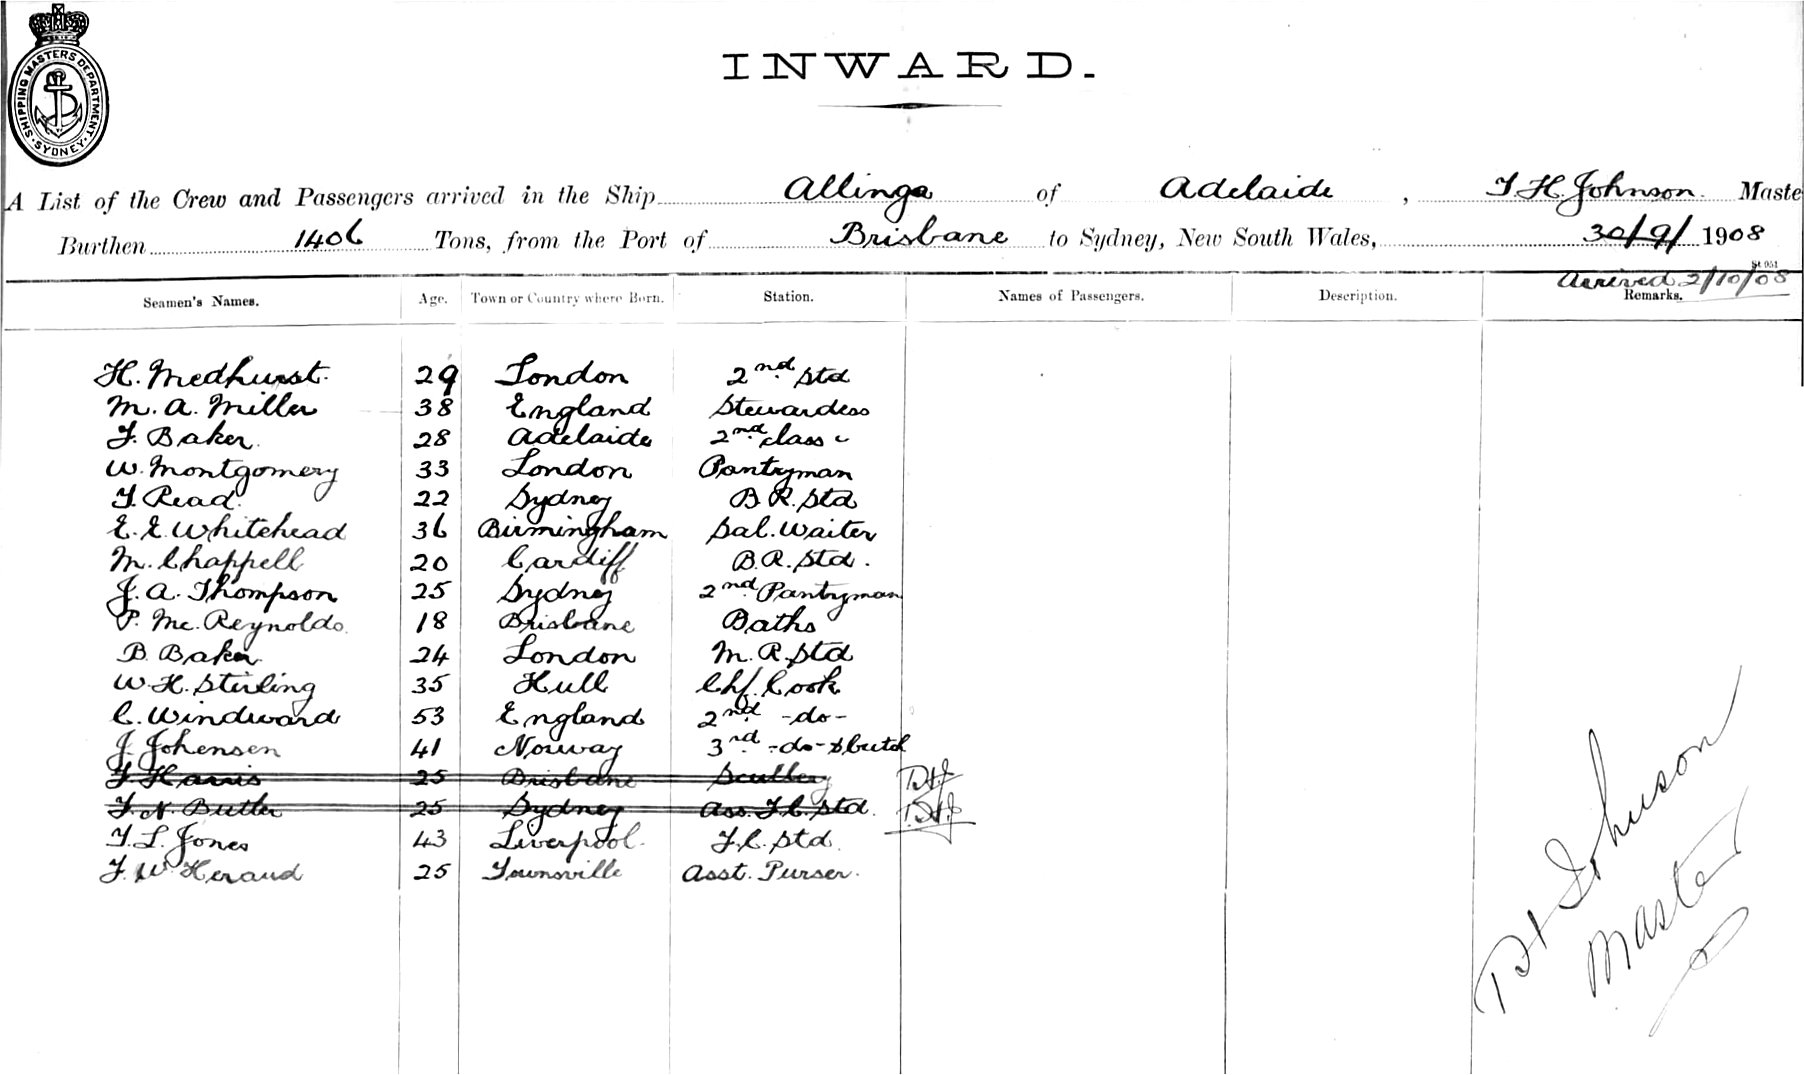 SHIPPING MASTERS DEPARTMENT
SYDNEY
INWARD.
A List of the Crew and Passengers arrived in the Ship Allinga of Adelaide, T. H. Johnson. Maste
Burthen 1406 Tons, from the Port of Brisbane to Sydney, New South Wales, 30/9/ 1908
St 051
Arrived 2/10/08
Seamen's Names. Age. Town or Country where Born. Station. Names of Passengers. Description. Remarks.
H. Medhurst. 29 London 2nd Std
M. A. Miller 38 England Stewardess
F. Baker. 28 Adelaide 2nd class
W. Montgomery 33 London Pantryman
F. Read. 22 Sydney B. R. Std
E. E. Whitehead 36 Birmingham Sal. Waiter
M. Chappell 20 Cardiff B. R. Std.
J. A. Thompson 25 Sydney 2nd Pantryman
P. Mc. Reynolds. 18 Brisbane Baths
B. Baker. 24 London M. R. Std
W. H. Stirling 35 Hull Chf. Cook
C. Windward 53 England 2nd -do-
J. Johensen 41 Norway 3rd -do- & butch
F. Harris 25 Brisbane Scullery THJ
F. N. Butler 25 Sydney Ass. F. C. Std. THJ
T. L. Jones 43 Liverpool. F. C. Std.
F. W. Heraud 25 Townsville Asst. Purser.
T H Johnson
Master